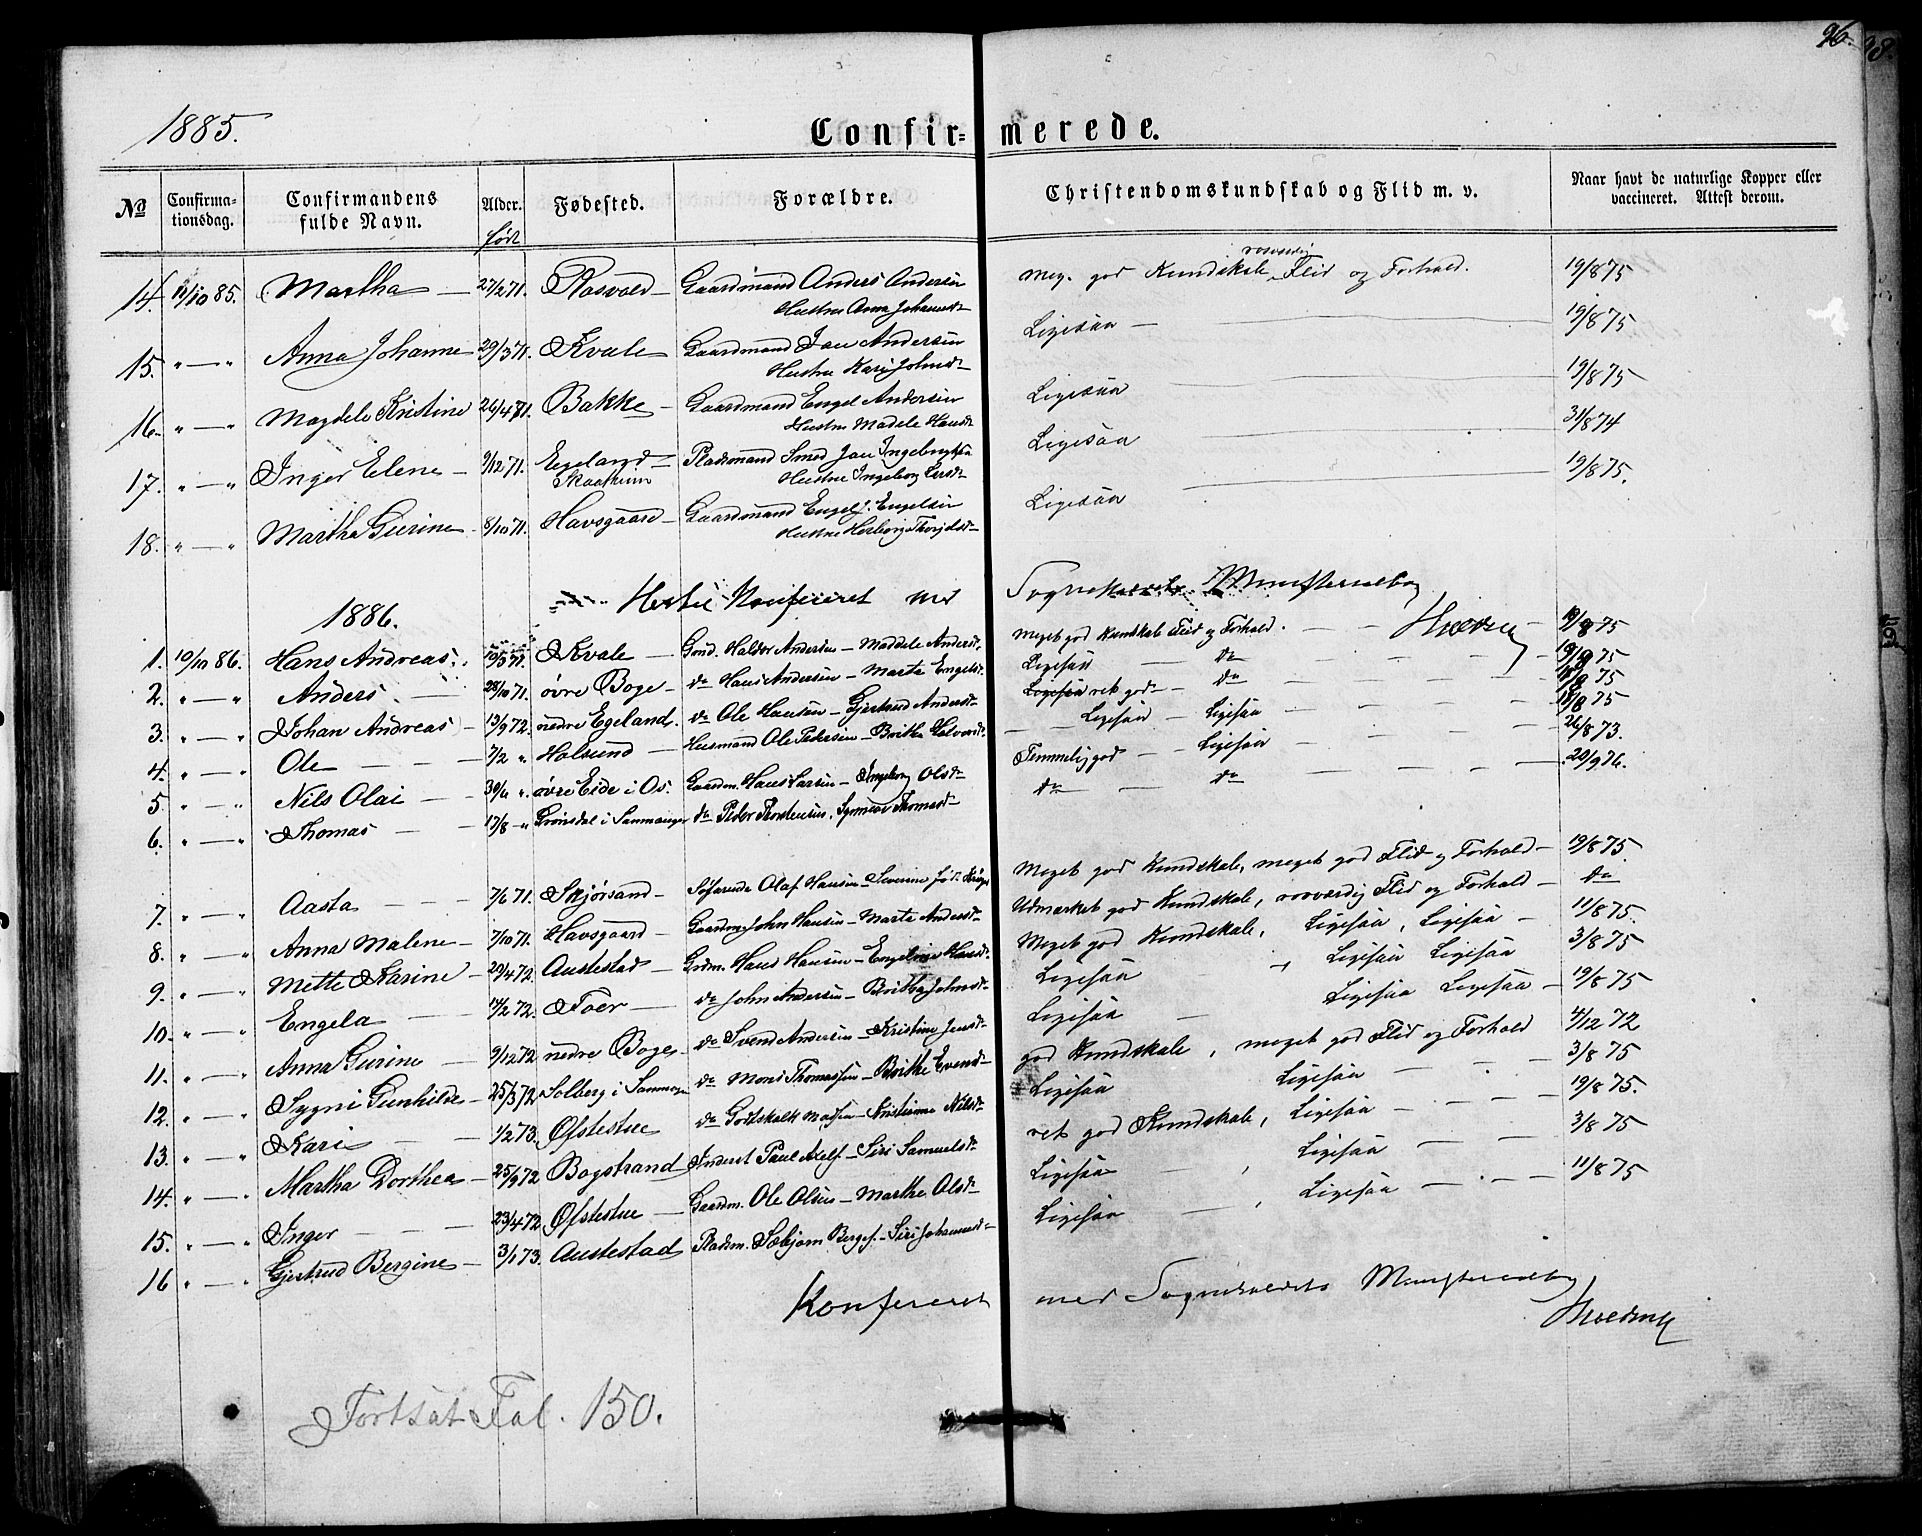 96.
98.
1885. Confirmerede.
№ Confirmationsdag. Confirmandens fulde Navn. Alder. født Fødested. Forældre. Christendomskundskab og Flid m. v. Naar havt de naturlige Kopper eller vaccineret. Attest derom.
14. 11/10 85. Martha — 27/2 71. Røsvold — Gaardmand Anders Andersen Meg. god Kundskab, rosværdig Flid og Forhold. 19/8 75
Hustru Anna Johannesd
15. " — " Anna Johanne 29/3 71. Kvale Gaardmand Jan Andersen Ligesaa — 19/8 75
Hustru Kari Johnsd
16. " — " Magdele Kristine 26/4 71. Bakke — Gaardmand Engel Andersen Ligesaa 19/8 75
Hustru Madele Hansd
17. " — " Inger Elene — 9/12 71. Egeland Pladsmand Smed Jan Ligesaa 31/8 74
Hustru Ingeborg Larsd
18. " — " Martha Gurine 8/10 71. Havsgaard — Gaardmand Engel J. Engelsen Ligesaa 19/8 75.
Hustru Herborg
1886. Hertil Konfereret med Sognekaldets Ministerialbog
1. 10/10 86. Hans Andreas. Kvale — Gmd. Haldor Andersen — Maddele Andersd. Meget god Kundskab Flid og Forhold. 19/8 75
2. " — " Anders. 28/10 71. øvre Boge — do Hans Andersen — Marta Engelsd. Ligesaa — do 19/8 75
3. " — " Johan Andreas 13/9 72. nedre Egeland. do Ole Hansen — Gjertrud Andersd Ligesaa ret god — do 75
4. " — " Ole 7/2 " Holsund — Husmand Ole Pedersen — Brithe Ligesaa — Ligesaa 18/8 75
5 " — " Nils Olai 30/6 ". øvre Eide i Os. Gaardm. Hans Larsen — Ingeborg Olsd Temmelig god — Ligesaa 26/8 73.
6. " — " Thomas 17/8 " Grønsdal i Sammanger do Peder Torstensen, Synneve Thomasd do — do 20/9 76.
7. " — " Aasta 7/6 71. Skjørsand — Søfarende Olaf Hansen — Severine Meget god Kundskab, meget god Flid og Forhold — 19/8 75.
8. " — " Anna Malene — 7/10 71. Havsgaard — Gaardm. John Hansen — Marta Andersd Udmærket god Kundskab, rosværdig Flid og Forhold — do
9. " — " Mette Karine 29/4 72. Austestad — Grdm. Hans Hansen — Engeline Hansd. Meget god Kundskab, Ligesaa, Ligesaa — 11/8 75.
10. " — " Engela 14/2 72. Toer — do John Andersen — Brithe Johnsd Ligesaa Ligesaa Ligesaa 3/8 75
11. " — " Anna Gurine 9/12 72 nedre Boge — do Svend Andersen — Kristine Jensd Ligesaa Ligesaa Ligesaa — 19/8 75
12. " — " Sygni Gunhilde 25/3 72 Solberg i Sammanger do Mons Thomassen — Brithe god Kundskab, meget god Flid og Forhold 4/12 72
13. " — " Kari 1/2 73. Øfstestue do Gotskalk Madsen — Kristianne Nilsd Ligesaa Ligesaa 3/8 75
14. " — " Martha Dorthea 25/9 72 Bogstrand Inderst Paul Axels. — Siri Samuelsd ret god Kundskab, Ligesaa 19/8 75.
15. " — " Inger 23/4 72. Øfstestue — Gaardm. Ole Olsen — Marthe Olsd Ligesaa Ligesaa 3/8 75
16 " — " Gjertrud Bergine — 3/1 73. Austestad Pladsm. Sæbjørn Berges. — Siri Johannesd Ligesaa Ligesaa 11/8 75
Konfereret med Sognekaldets Ministerialbog
Fortsat Fol. 150.